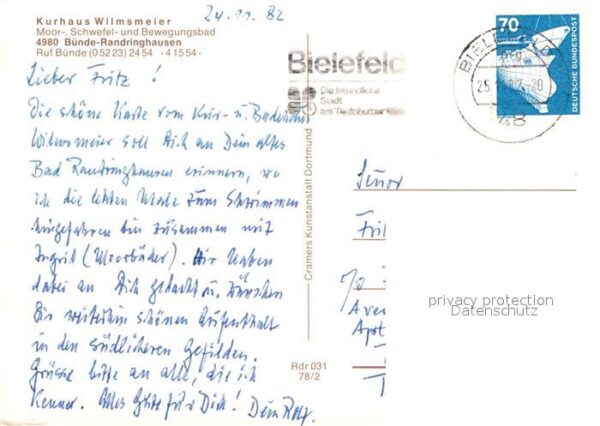 24.10.82
Kurhaus Wilmsmeier
Moor-, Schwefel- und Bewegungsbad
4980 Bünde-Randringhausen
Ruf Bünde (05223) 2454 · 41554 ·
Lieber Fritz!
Die schöne Karte vom Kur- u. Badehaus
Wilmsmeier soll Dich an Dein altes
Bad Randringhausen erinnern, wo
ich die letzten Male zum Schwimmen
hingefahren bin zusammen mit
Ingrid (Moorbäder). Wir haben
dabei an Dich gedacht u. wünschen
Dir weiterhin schönen Aufenthalt
in den südlicheren Gefilden.
Grüsse bitte an alle, die ich
kenne. Alles Gute für Dich! Dein Rolf.
Cramers Kunstanstalt Dortmund
Rdr 031
78/2
Bielefeld
Die freundliche
Stadt
am Teutoburger Wald
BIELEFELD
48
70
DEUTSCHE BUNDESPOST
Señor
Fri
c/o
Aven
Apt
privacy protection
Datenschutz